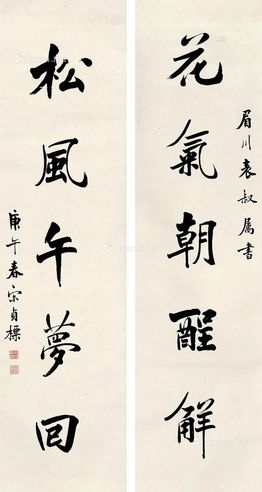 花氣朝醒解
眉川表叔属書
松風午夢回
庚午春宗貞標